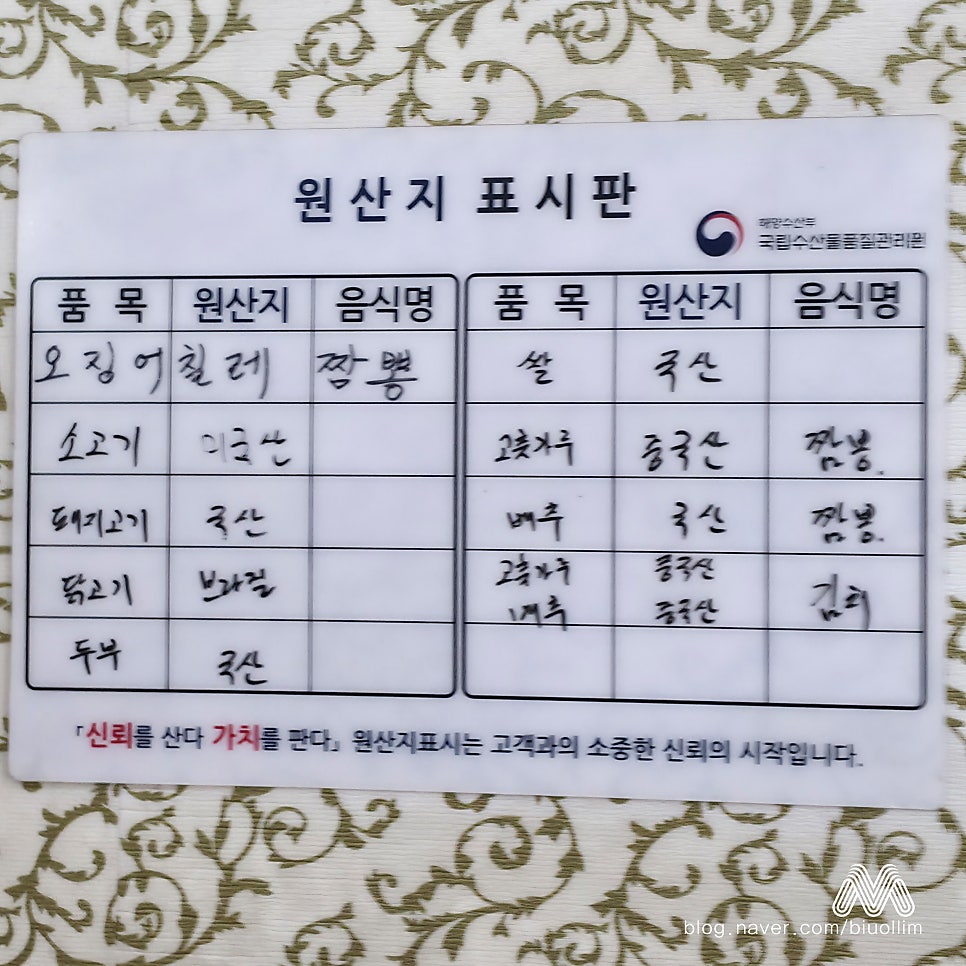 원산지 표시판
해양수산부
국립수산물품질관리원
품 목 원산지 음식명
오징어 칠레 짬뽕
소고기 미국산
돼지고기 국산
닭고기 브라질
두부 국산
품 목 원산지 음식명
쌀 국산
고춧가루 중국산 짬뽕.
배추 국산 짬뽕.
고춧가루 중국산 김치
배추 중국산
「신뢰를 산다 가치를 판다」 원산지표시는 고객과의 소중한 신뢰의 시작입니다.
blog.naver.com/biuollim